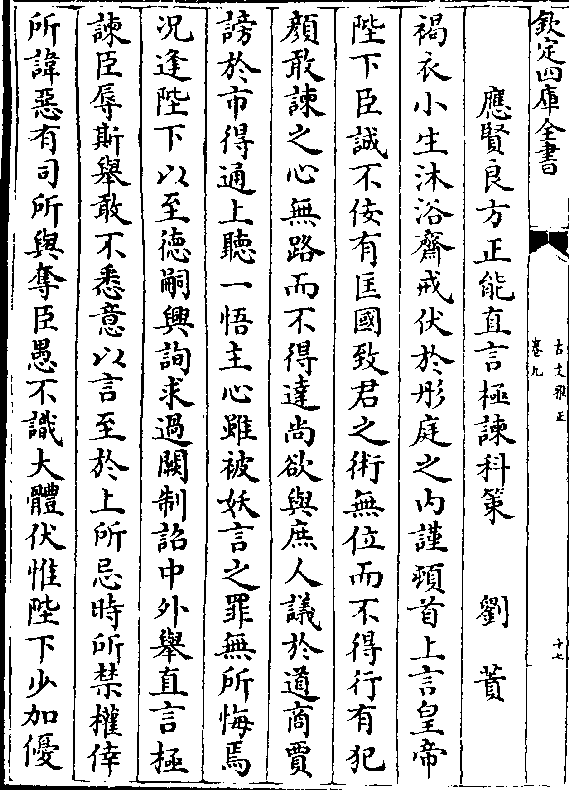 欽定四庫全書
古文雅正
卷九
十七
應賢良方正能直言極諫科策　劉蕡
褐衣小生沐浴齋戒伏於彤庭之內謹頓首上言皇帝
陛下臣誠不佞有匡國致君之術無位而不得行有犯
顏敢諫之心無路而不得達尚欲與庶人議於道商賈
謗於市得通上聽一悟主心雖被妖言之罪無所悔焉
況逢陛下以至德嗣興詢求過闕制詔中外舉直言極
諫臣辱斯舉敢不悉意以言至於上所忌時所禁權倖
所諱惡有司所與奪臣愚不識大體伏惟陛下少加優